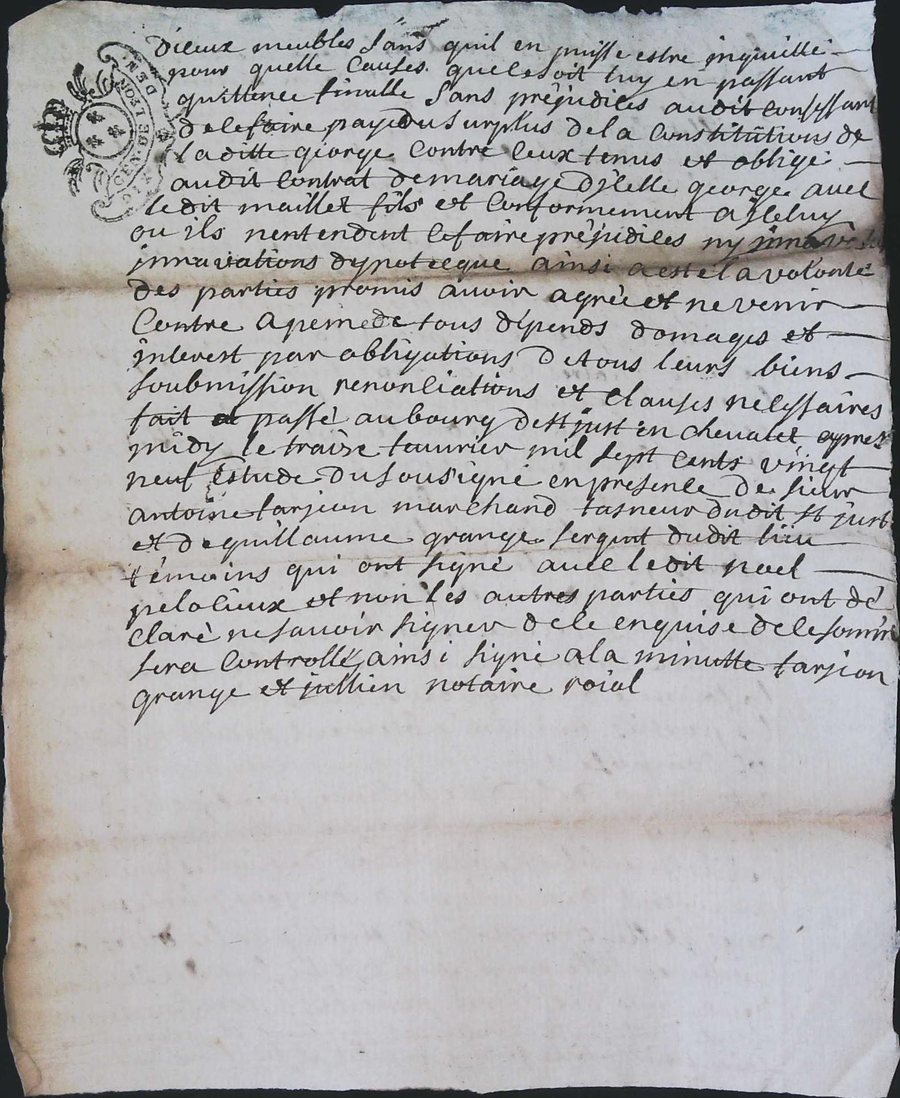 GEN. DE LION
dieux meubles sans quil en puisse estre inquiitté
pour quelle Causes que ce soit luy en passant
quittance finalle sans préjudices audit confessant
de le faire paye du surplus de la Constitutions de
ladille george Contre Ceux tenus et obligé
audit Contrat de mariage dicelle george avec
ledit maillet fils et Conformement a Jceluy
ou ils nentendent ce faire préjudices ny
jnnavations dypotecque ainsi a esté la volonte
des parties promis avoir agréé et ne venir
Contre a peine de tous dépends domages et
interest par obligations de tous leurs biens
soubmission renonciations et clauses necessaires
fait et passé au bourg de st just en chevalet apres
midy le traize fauvrier mil sept cents vingt
neuf Estude du sousigné en presence de sieur
antoine farjion marchand tasneur dudit st just
et de guillaume grange sergent dudit lieu
témoins qui ont signé avec ledit noel
pelocieux et non les autres parties qui ont dé
claré ne savoir signer de ce enquise de le somir
sera Controllé, ainsi signé a la minutte farjion
grange et jullien notaire roial